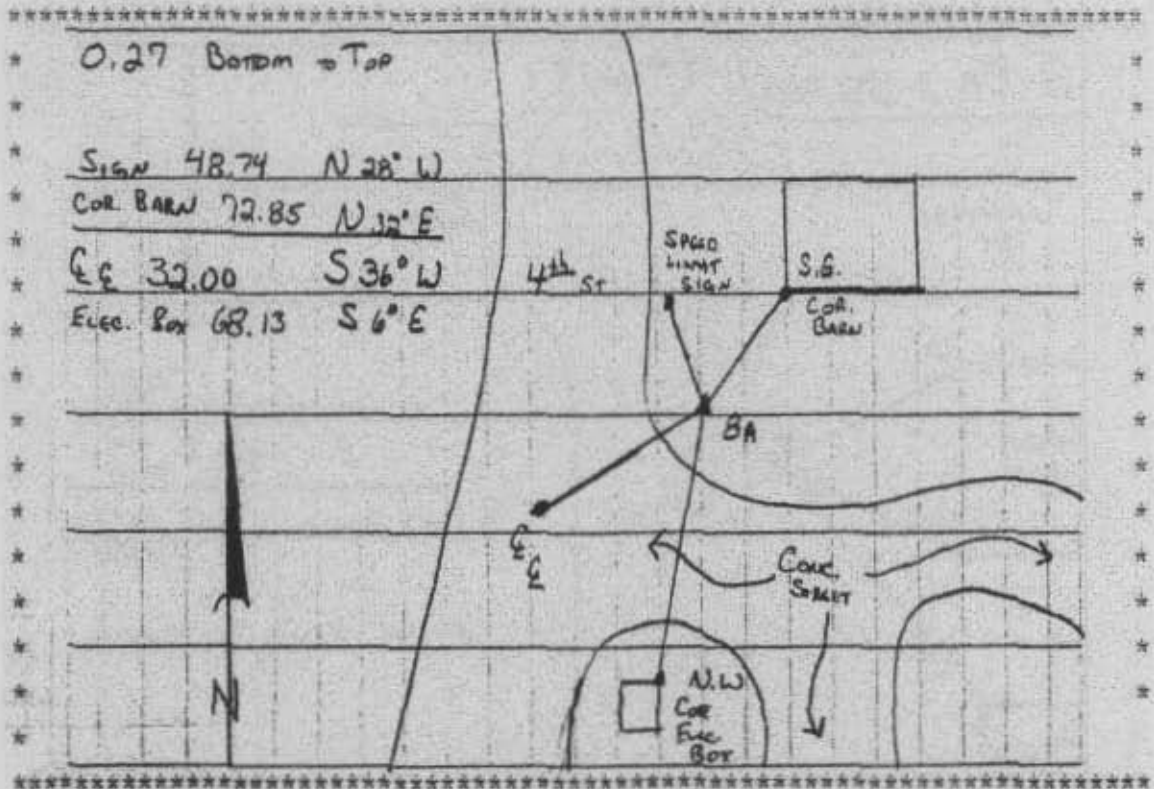 0.27 Bottom to Top
Sign 48.74 N 28° W
Cor. Barn 72.85 N 32° E
℄ ℄ 32.00 S 36° W
Elec. Box 68.13 S 6° E
4th St
Speed
Limit
Sign
S.E.
Cor.
Barn
BA
℄
℄
Conc.
Street
N
N.W
Cor
Elec
Box